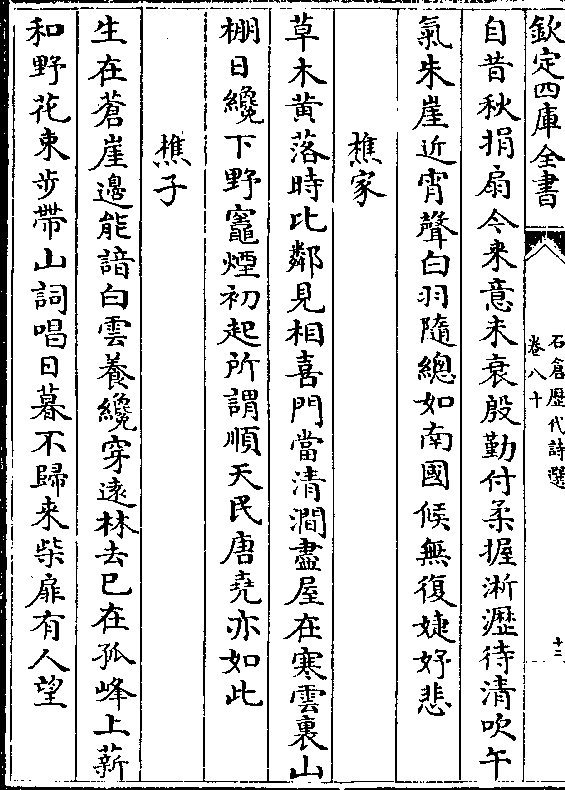 欽定四庫全書
石倉歷代詩選
卷八十
十三
自昔秋捐扇今来意未衰殷勤付柔握淅瀝待清吹午
氣朱崖近宵聲白羽隨總如南國候無復婕妤悲
樵家
草木黄落時比鄰見相喜門當清澗盡屋在寒雲裏山
棚日纔下野竈煙初起所謂順天民唐堯亦如此
樵子
生在蒼崖邊能諳白雲養纔穿遠林去已在孤峰上薪
和野花束步帶山詞唱日暮不歸来柴扉有人望